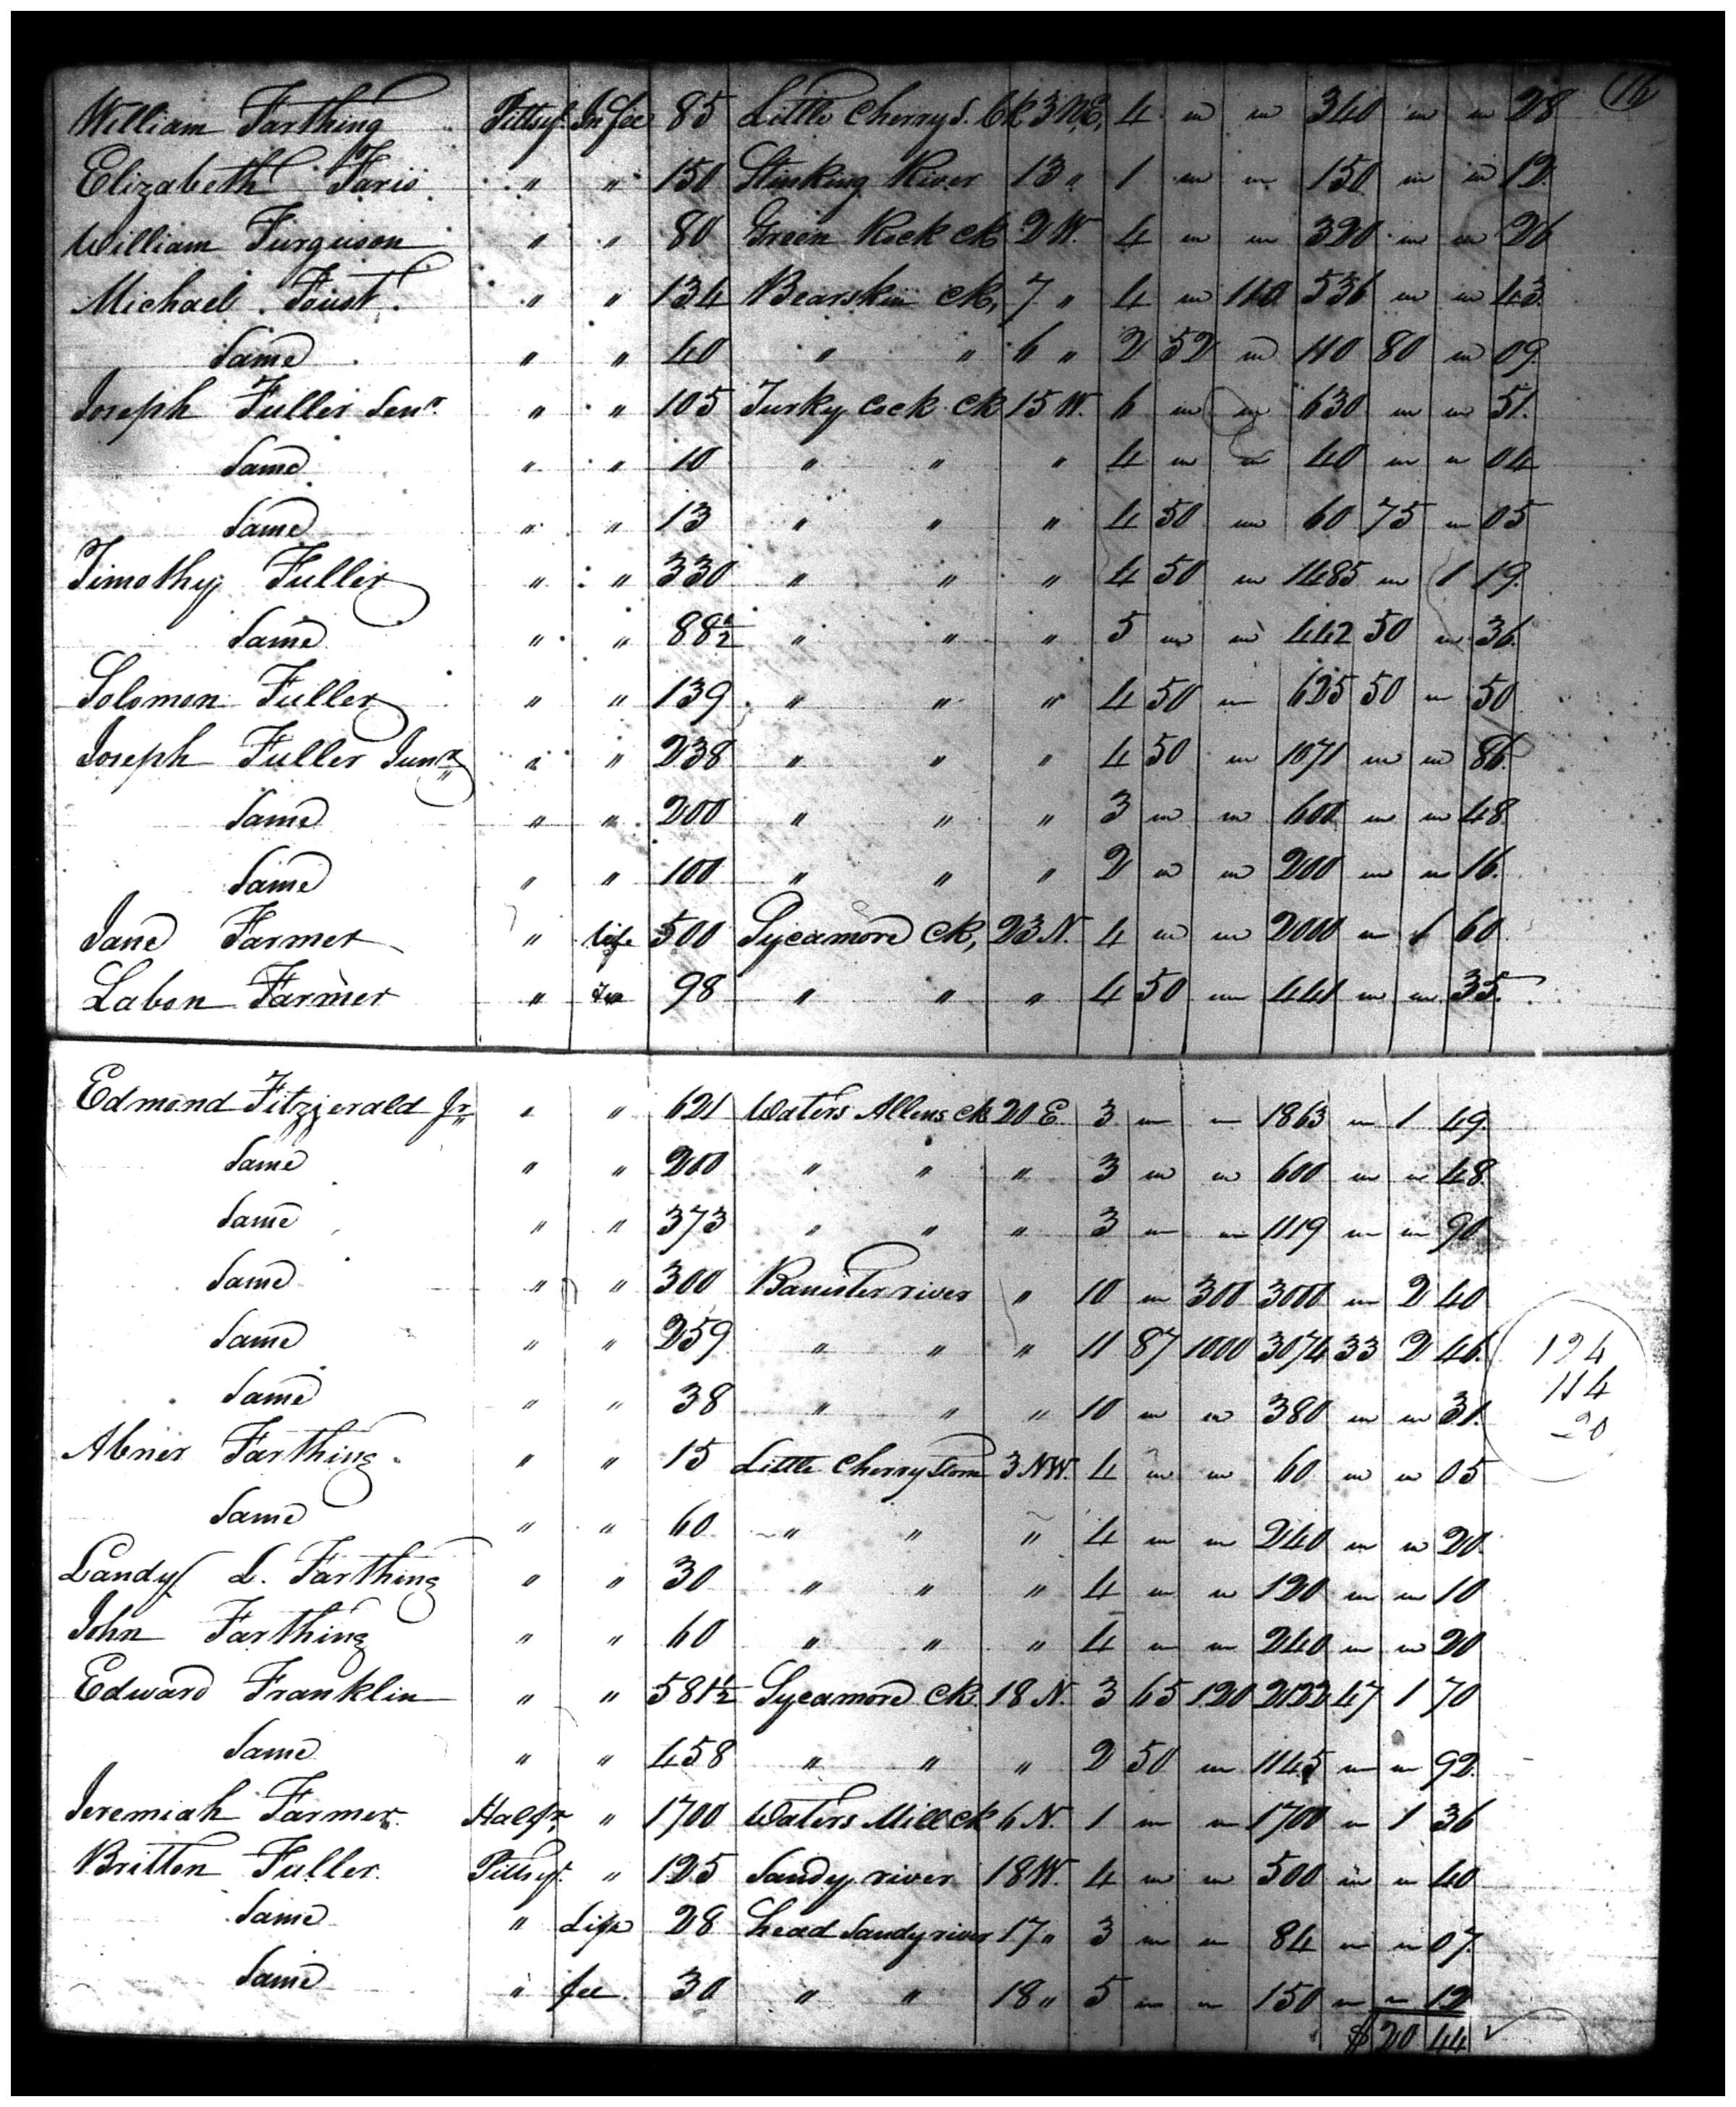 16
William Farthing Pittsy. In fee 85 Little Cherry S. Ck 3 N.E. 4 " " 340 " " 28
Elizabeth Faris " " 150 Stinking River 13 " 1 " " 150 " " 12.
William Furguson " " 80 Green Rock ck 2 W. 4 " " 320 " " 26
Michael Foust " " 134 Bearskin ck, 7 " 4 " 140 536 " " 43.
Same " " 40 " " 6 " 2 52 " 110 80 " 09.
Joseph Fuller Senr. " " 105 Turky Cock Ck 15 W. 6 " " 630 " " 51.
Same " " 10 " " " 4 " " 40 " " 04
Same " " 13 " " " 4 50 " 60 75 " 05
Timothy Fuller " " 330 " " " 4 50 " 1485 " 1 19.
Same " " 88 1/2 " " " 5 " " 442 50 " 36.
Solomon Fuller " " 139 " " " 4 50 " 625 50 " 50
Joseph Fuller Junr " " 238 " " " 4 50 " 1071 " " 86.
Same " " 200 " " " 3 " " 600 " " 48.
Same " " 100 " " " 2 " " 200 " " 16.
Jane Farmer " life 500 Sycamore Ck, 23 N. 4 " " 2000 " 1 60
Labon Farmer " fee 98 " " " 4 50 " 441 " " 35.
Edmond Fitzjerald Jr. " " 621 Waters Allens ck 20 E. 3 " " 1863 " 1 49.
Same " " 200 " " " 3 " " 600 " " 48.
Same " " 373 " " " 3 " " 1119 " " 90
Same " " 300 Banister river " 10 " 300 3000 " 2 40
Same " " 259 " " " 11 87 1000 3074 33 2 46.
124
114
20
Same " " 38 " " " 10 " " 380 " " 31.
Abner Farthing " " 15 Little Cherry Stone 3 N.W. 4 " " 60 " " 05
Same " " 60 " " " 4 " " 240 " " 20.
Landy L. Farthing " " 30 " " " 4 " " 120 " " 10
John Farthing " " 60 " " " 4 " " 240 " " 20
Edward Franklin " " 581 1/2 Sycamore Ck. 18 N. 3 65 120 2122 47 1 70
Same " " 458 " " " 2 50 " 1145 " " 92.
Jeremiah Farmer Halfx, " 1700 Waters Mill ck 6 N. 1 " " 1700 " 1 36
Britton Fuller Pittsy. " 125 Sandy river 18 W. 4 " " 500 " " 40
Same " Life 28 head Sandy river 17 " 3 " " 84 " " 07.
Same " fee 30 " " 18 " 5 " " 150 " " 12
$ 20 44 ✓